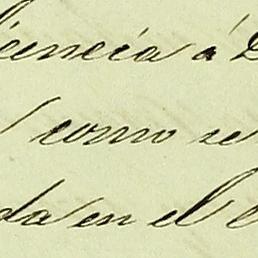 licencia á D
como se
da en el